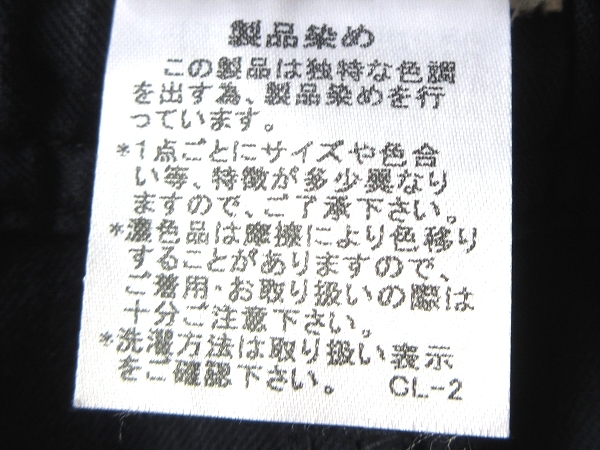 製品染め
この製品は独特な色調
を出す為、製品染めを行
っています。
*1点ごとにサイズや色合
い等、特徴が多少異なり
ますので、ご了承下さい。
*濃色品は摩擦により色移り
することがありますので、
ご着用・お取り扱いの際は
十分ご注意下さい。
*洗濯方法は取り扱い表示
をご確認下さい。 CL-2